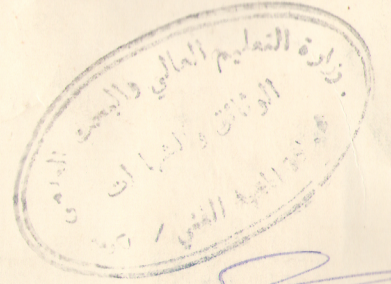 وزارة التعليم العالي والبحث العلمي
الوثائق والشهادات
المعهد الفني /